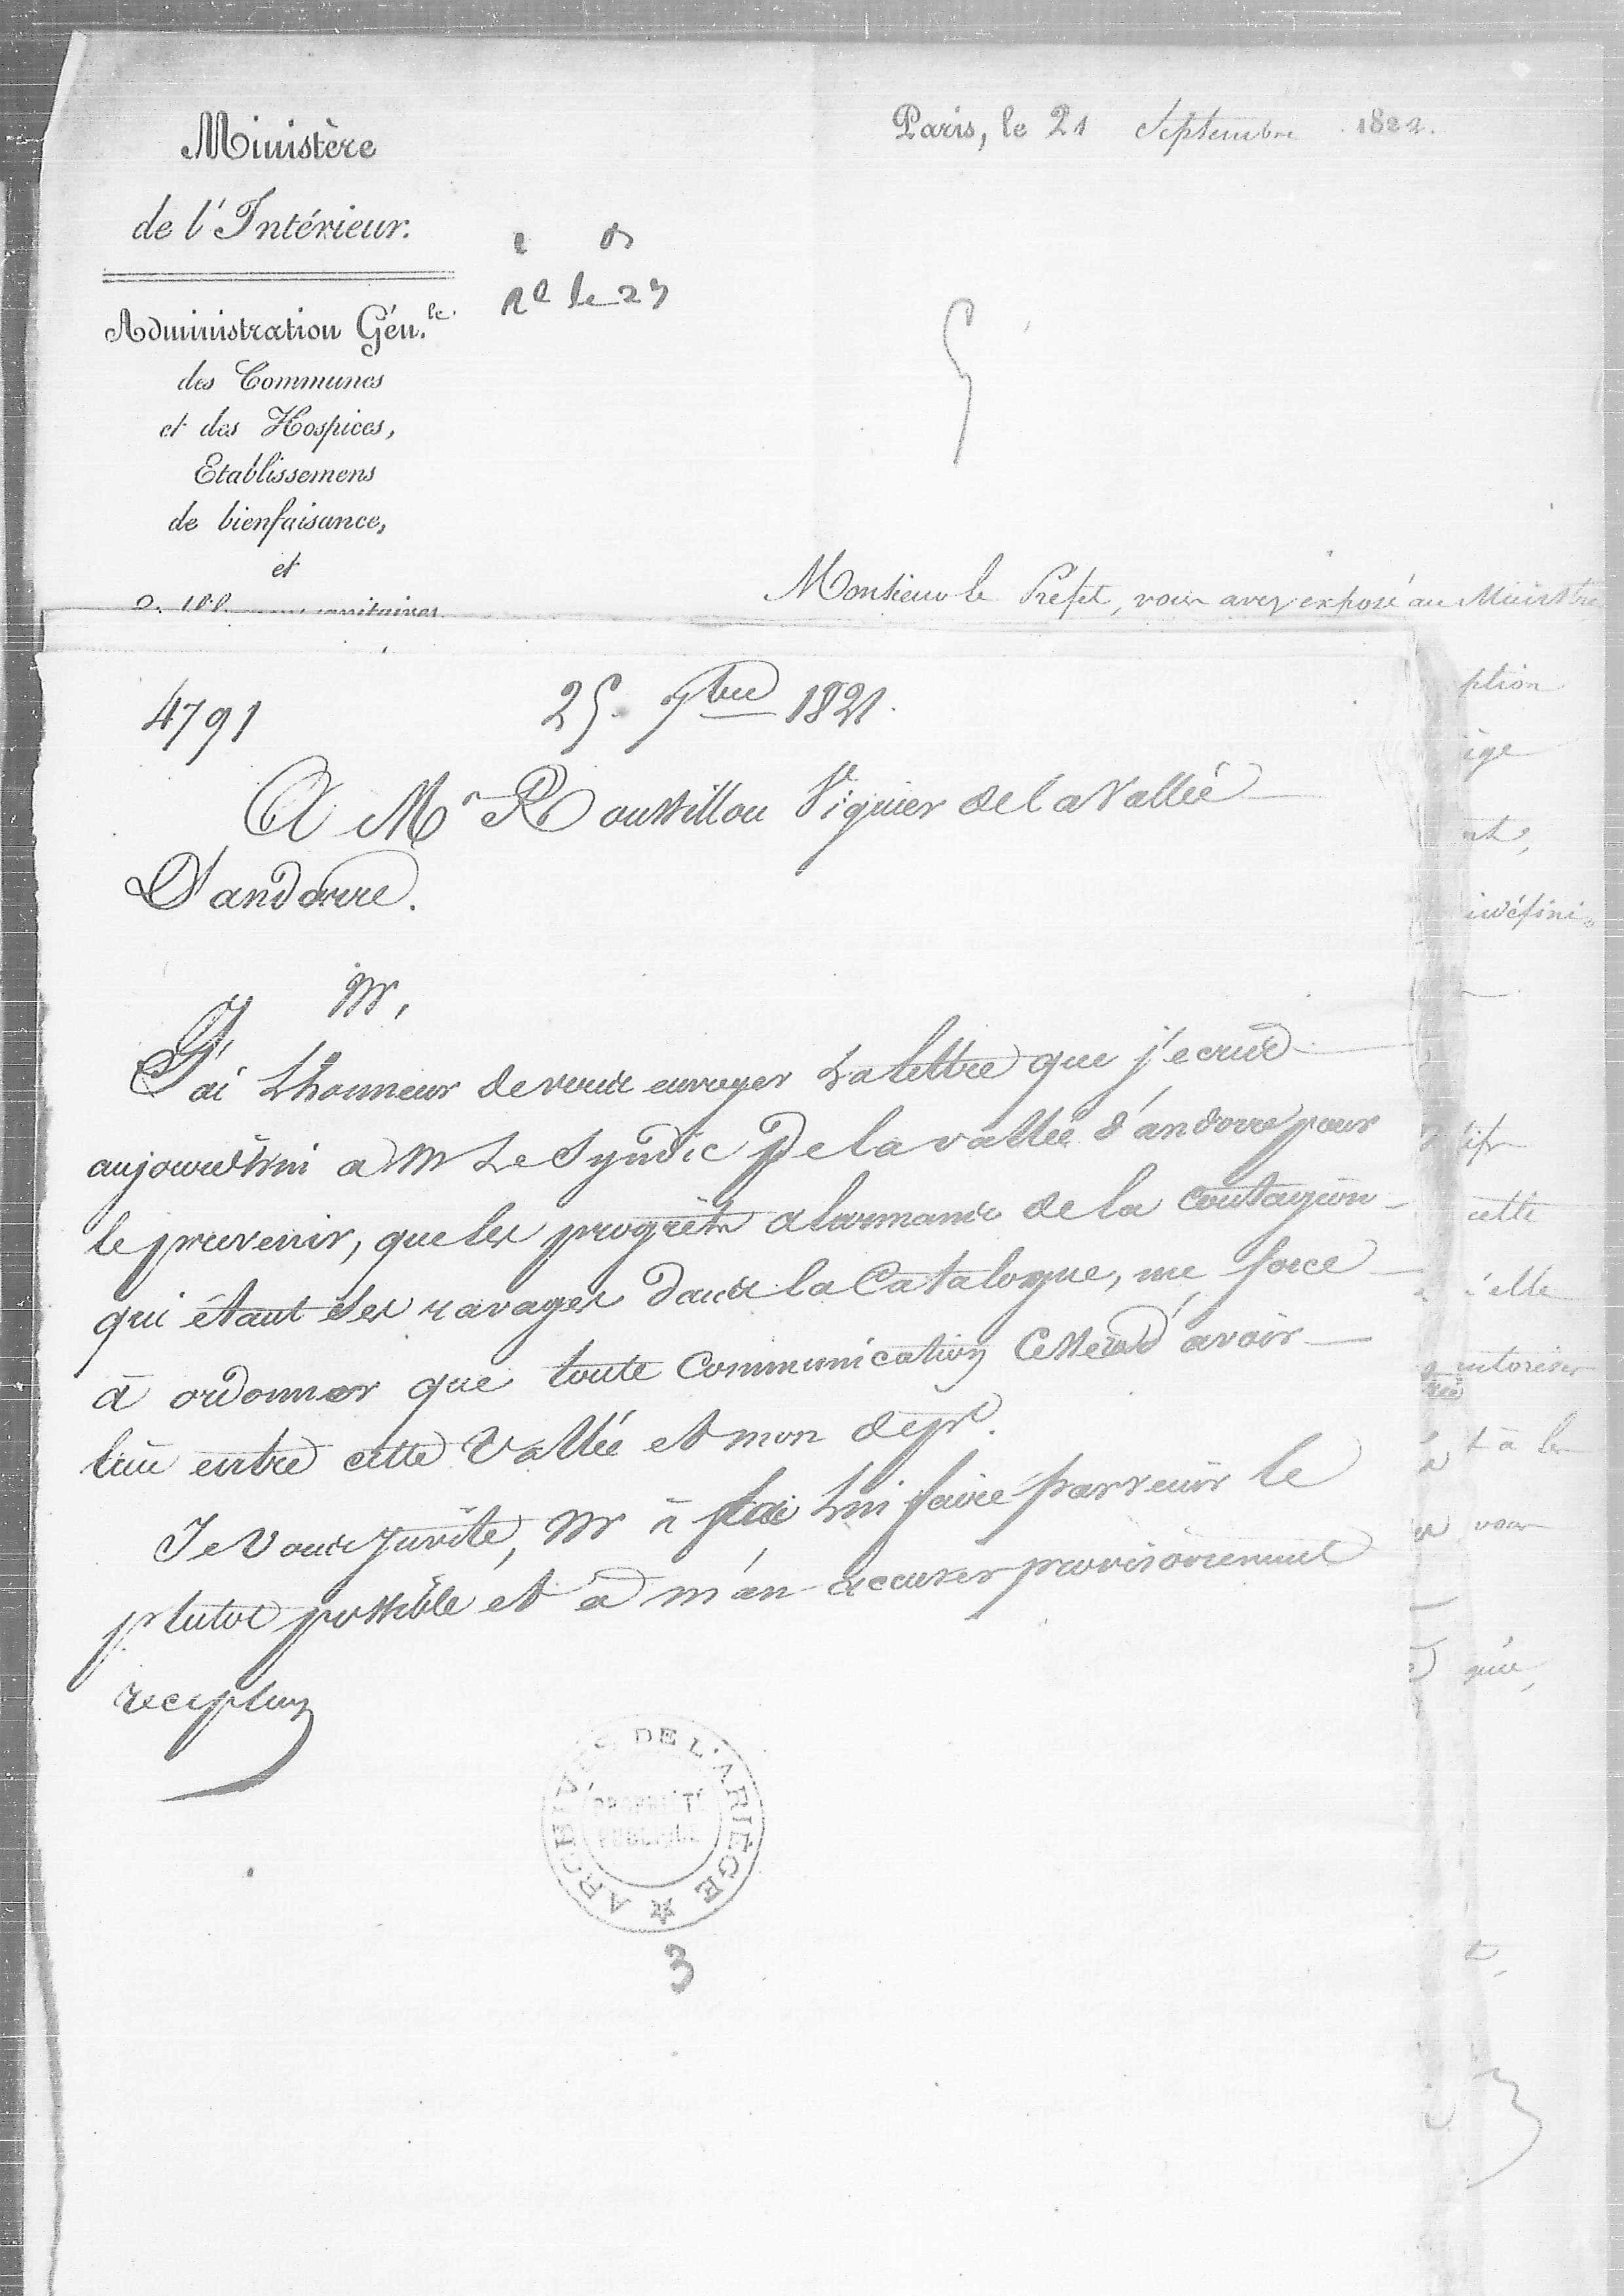 Ministère
de l'Intérieur.
Administration Gén.le
des Communes
et des Hospices,
Etablissemens
de bienfaisance,
et
sanitaires
Paris, le 21 Septembre 1822.
Rd le 27
Monsieur le Préfet, vous avez exposé au Ministre
4791
25 7bre 1821.
A Mr Roussillou Viguier de la Vallée
D'andorre.
Mr,
J'ai L'honneur de vous envoyer La lettre que j'ecris
aujourd'hui a Mr Le Syndic De la vallée d'andorre pour
le prevenir, que les progrès alarmans de la Contagion
qui étant ses ravages dans la Catalogne, me force
à ordonner que toute Communication Cessera d'avoir
lieu entre cette Vallée et mon dépt.
Je Vous Invite, Mr à Lui faire parvenir le
plutot possible et à m'an accuser provisoirement
reception
ption
ège
nt,
indéfini
tifs
cette
celle
autoriser
t à les
vous
que,
ARCHIVES DE L'ARIÈGE
PROPRIÉTÉ
PUBLIQUE
3